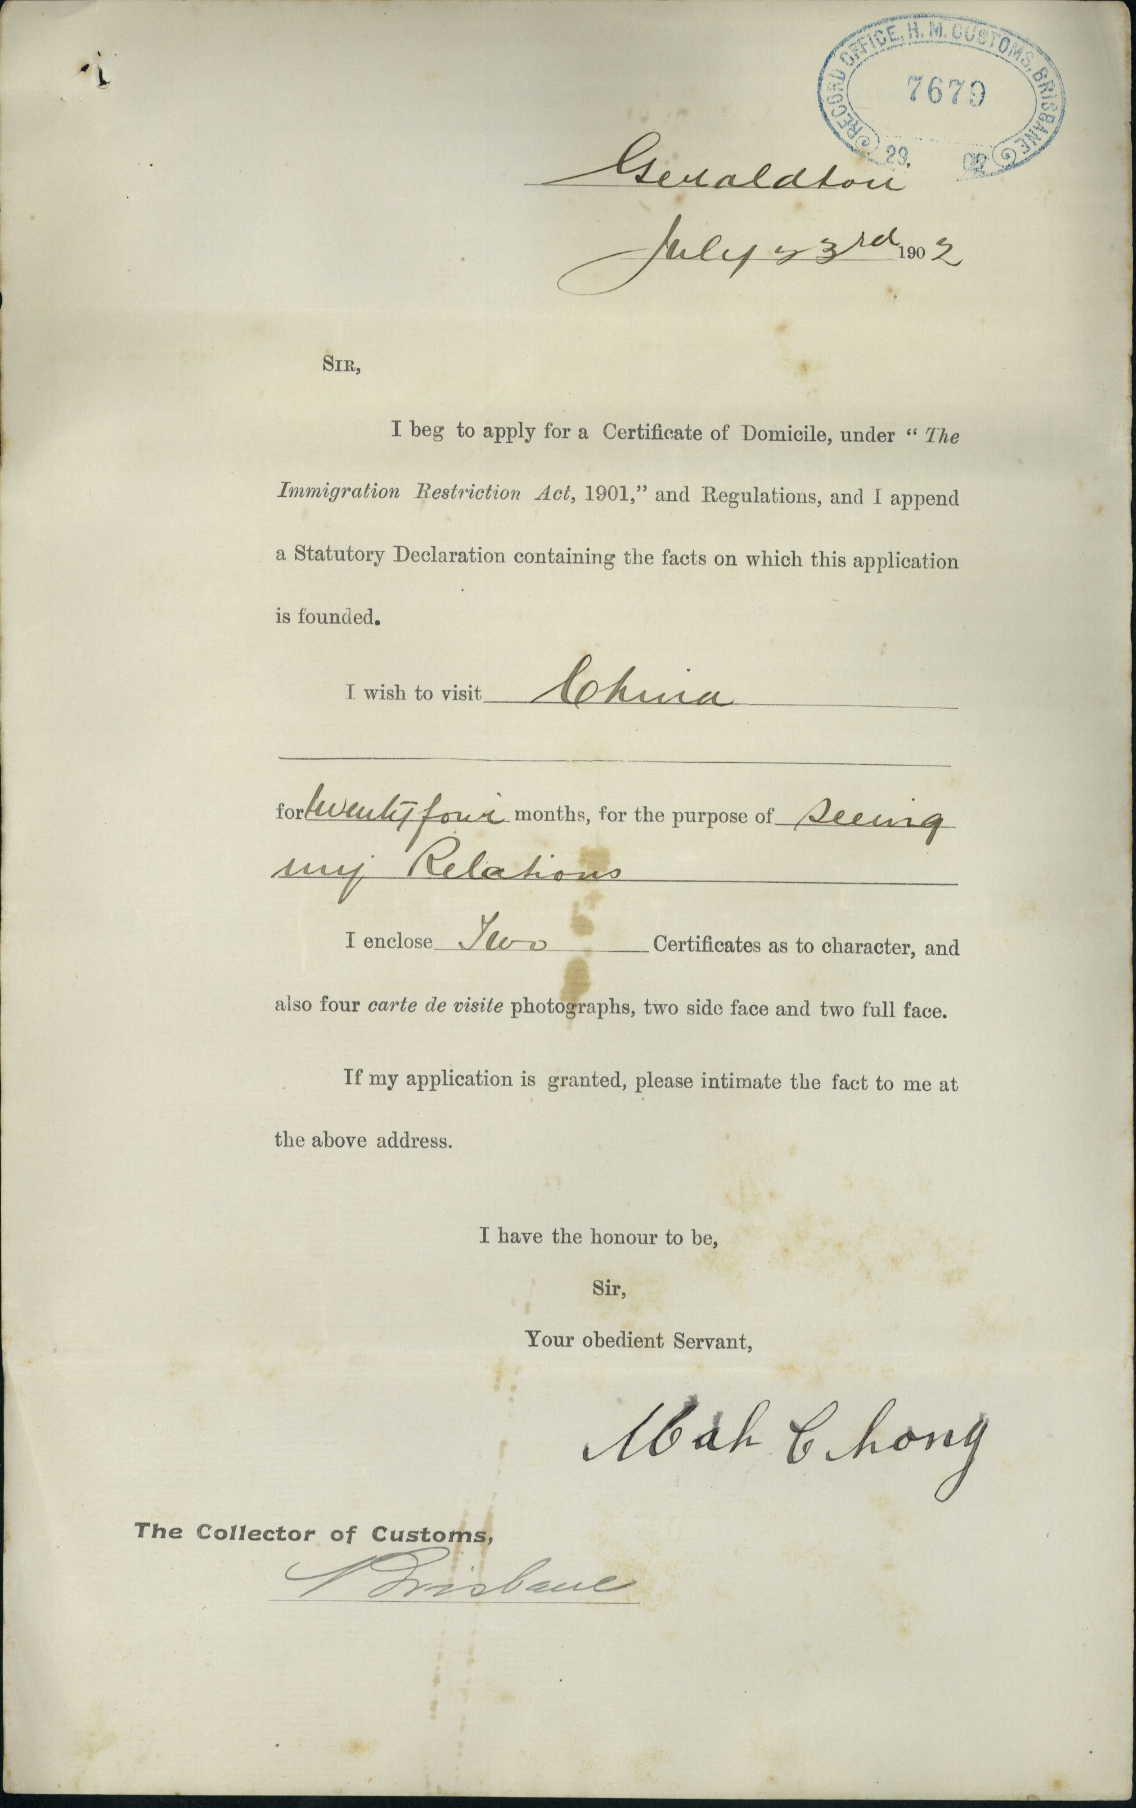 RECORD OFFICE, H. M. CUSTOMS, BRISBANE
7679
29. 02
Geraldton
July 23rd 1902
SIR,
I beg to apply for a Certificate of Domicile, under “ The
Immigration Restriction Act, 1901,” and Regulations, and I append
a Statutory Declaration containing the facts on which this application
is founded.
I wish to visit China
for twenty four months, for the purpose of seeing
my Relations
I enclose Two Certificates as to character, and
also four carte de visite photographs, two side face and two full face.
If my application is granted, please intimate the fact to me at
the above address.
I have the honour to be,
Sir,
Your obedient Servant,
Mah Chong
The Collector of Customs,
Brisbane